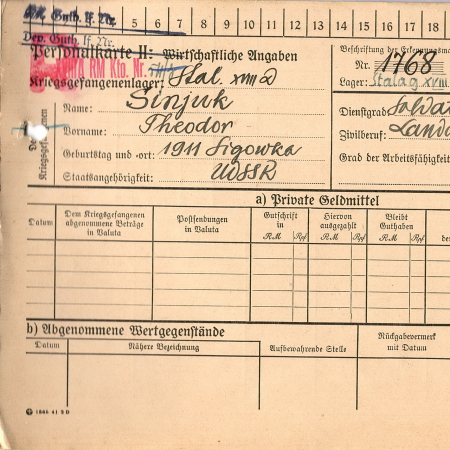 Guth. lf. Nr.
5 6 7 8 9 10 11 12 13 14 15 16 17 18
Dep. Guth. lf. Nr.
Personalkarte II: Wirtschaftliche Angaben
Beschriftung der Erkennungsma
RM Kto. Nr.
Nr. 1768
Kriegsgefangenenlager: Stal. XVIII
Lager: Stalag XVIII
Des Kriegsgefangenen
Name: Sinjuk
Dienstgrad: Soldat
Vorname: Theodor
Zivilberuf: Landa
Geburtstag und -ort: 1911 Sigowka
Grad der Arbeitsfähigkeit
Staatsangehörigkeit: UdSSR
a) Private Geldmittel
Datum
Dem Kriegsgefangenen abgenommene Beträge in Valuta
Postsendungen in Valuta
Gutschrift in
RM Rpf
Hiervon ausgezahlt
RM Rpf
Bleibt Guthaben
RM Rpf
de
b) Abgenommene Wertgegenstände
Datum
Nähere Bezeichnung
Aufbewahrende Stelle
Rückgabevermerk mit Datum
1066 41 3 D